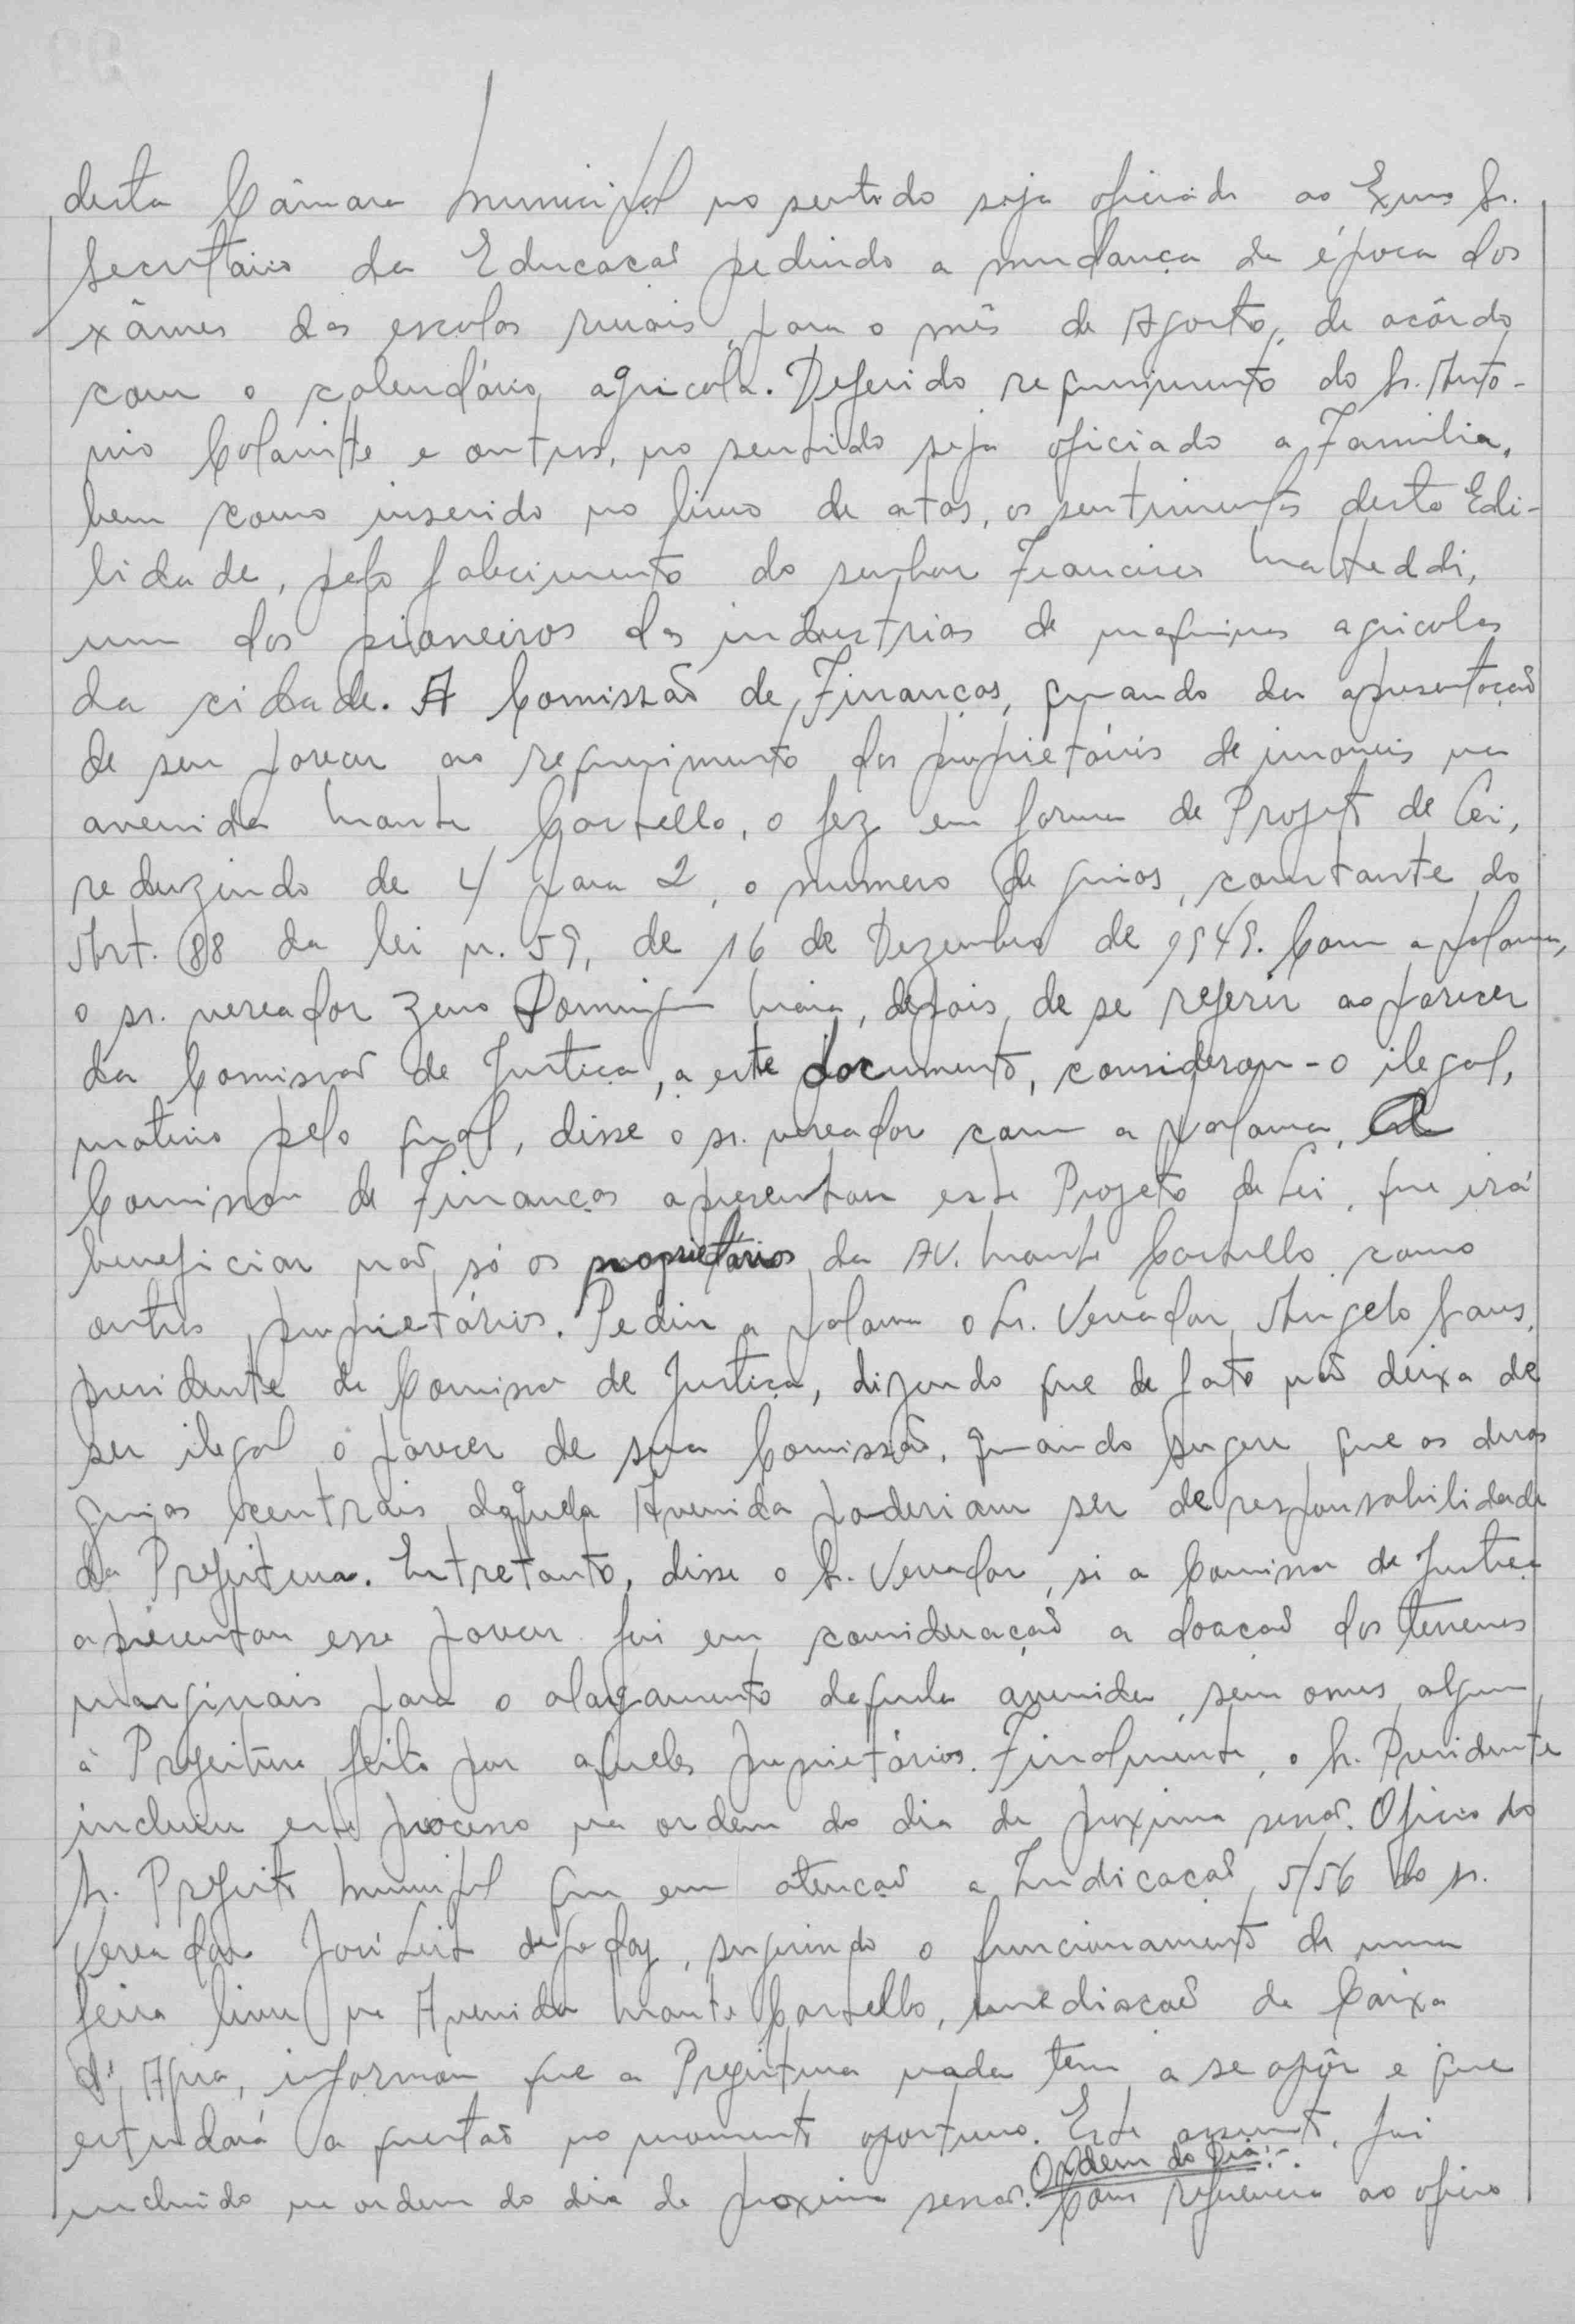 desta Câmara Municipal no sentido seja oficiado ao Exmo Sr.
Secretário da Educação pedindo a mudança da época dos
exâmes das escolas rurais, para o mês de Agosto, de acôrdo
com o calendário agricola. Deferido requerimento do Sr. Anto-
nio Colavitte e outros, no sentido seja oficiado a Familia,
bem como inserido no livro de atas, os sentimentos desta Edi-
lidade, pelo falecimento do senhor Francisco Malteddi,
um dos pioneiros das industrias de maquinas agricolas
da cidade. A Comissão de Finanças, quando da apresentação
de seu parecer ao requerimento dos proprietários de imoveis na
avenida Monte Castello, o fez em forma de Projeto de Lei,
reduzindo de 4 para 2, o numero de guias, constante do
Art. 88 da lei n. 59, de 16 de Dezembro de 1949. Com a palavra,
o sr. vereador Zeno Domingues Maia, depois de se referir ao parecer
da Comissão de Justiça, a este documento, considerou-o ilegal,
motivo pelo qual, disse o sr. vereador com a palavra, a
Comissão de Finanças apresentou este Projeto de Lei, que irá
beneficiar não só os proprietários da AV. Monte Castello como
outros proprietários. Pediu a palavra o Sr. Vereador Angelo
presidente da Comissão de Justiça, dizendo que de fato não deixa de
ser ilegal o parecer de sua Comissão, quando sugere que as duas
guias centrais daquela Avenida poderiam ser de responsabilidade
da Prefeitura. Entretanto, disse o Sr. Vereador, si a Comissão de Justiça
apresentou esse parecer foi em consideração a doação dos terrenos
marginais para o alargamento daquela avenida, sem onus algum
à Prefeitura, feita por aqueles proprietários. Finalmente, o Sr. Presidente
incluiu este processo na ordem do dia da proxima sessão. Oficio do
Sr. Prefeito Municipal que em atenção a Indicação 5/56 do sr.
Vereador José Leite de Godoy, sugerindo o funcionamento de uma
feira livre na Avenida Monte Castello, imediação da Caixa
d'Agua, informou que a Prefeitura nada tem a se opôr e que
estudará a questão no momento oportuno. Este assunto, foi
incluido na ordem do dia da proxima sessão. Ordem do Dia:-. Com referencia ao oficio